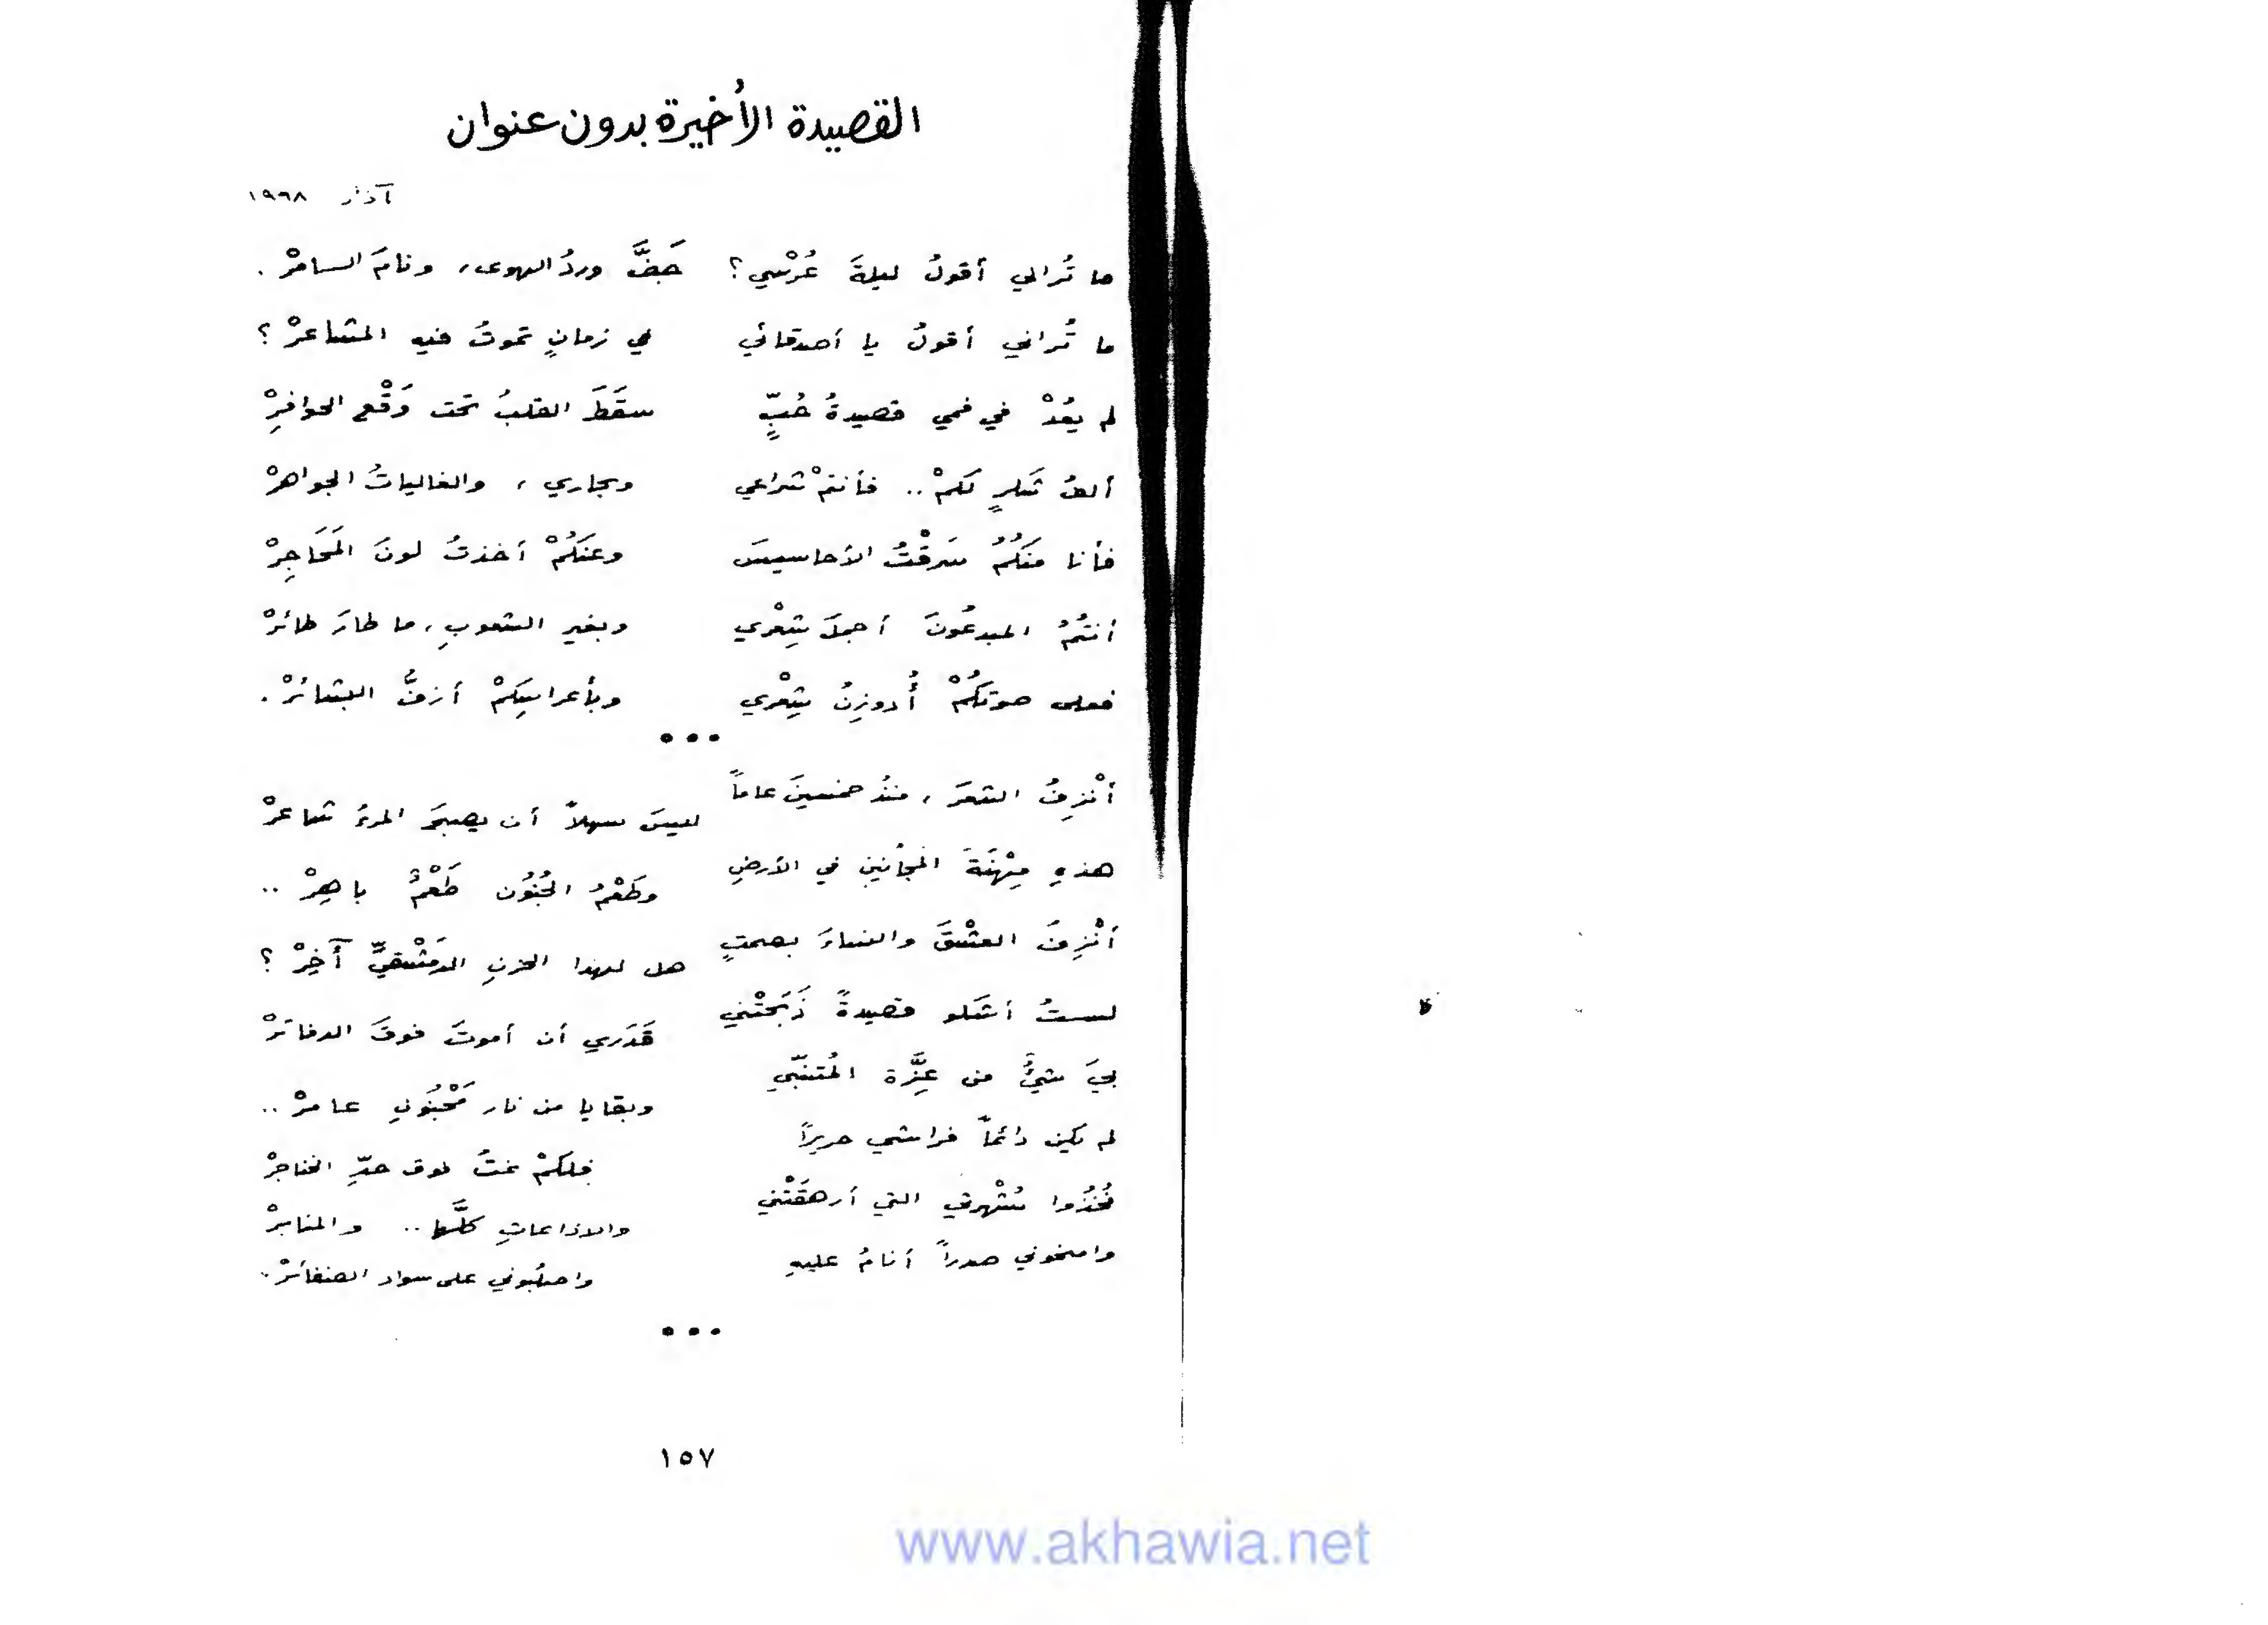 القصيدة الأخيرة بدون عنوان
آذار ١٩٦٨
ما تُراني أقولُ ليلةَ عُرْسِي؟ جَفَّ وردُ الهوى، ونامَ السامرْ.
ما تُراني أقولُ يا أصدقائي في زمانٍ تموتُ فيه المشاعرْ؟
لم يعُدْ في فمي قصيدةُ حُبٍّ سقَطَ القلبُ تحت وَقْعِ الحوافِرْ
ألفُ شكرٍ لكمْ.. فأنتمْ شراعي وبحاري، والغالياتُ الجواهرْ
فأنا منكُمُ سَرقْتُ الأحاسيسَ وعنكُمْ أخذتُ لونَ المَحَاجِرْ
أنتُمُ المبدعُونَ أجملَ شِعْري وبغير الشعوبِ، ما طارَ طائرْ
فعلى صوتكُمْ أُدوزِنُ شِعْري وبأعراسِكمْ أزفُّ البشائرْ.
•••
أنْزِفُ الشعرَ، منذُ خمسينَ عاماً
ليسَ سهلاً أن يصبحَ المرءُ شاعرْ
هذهِ مِهْنَةَ المجانين في الأرضِ
وطَعْمُ الجُنُون طَعْمٌ باهِرْ..
أنْزِفُ العشْقَ والنساءَ بصمتٍ
هل لهذا الحزنِ الدمَشْقيِّ آخِرْ؟
لستُ أشكو قصيدةً ذَبَحَتْني
قَدَري أن أموتَ فوقَ الدفاترْ
بيَ شيءٌ من عِزَّة المُتنبّي
وبقايا من نار مَجْنُونِ عامرْ..
لم يكن دائماً فراشي حريراً
فلكمْ نمتُ فوق حدِّ الخناجرْ
فخُذُوا شُهْرتي التي أرهقَتْني
والاذاعاتِ كلَّها.. والمنابرْ
وامنحوني صدراً أنامُ عليهِ
واصلُبوني على سواد الضفائرْ.
•••
١٥٧
www.akhawia.net